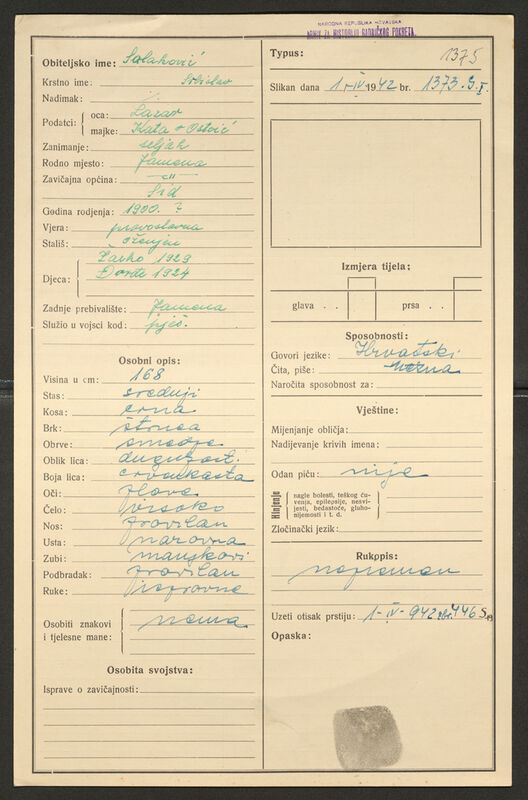 NARODNA REPUBLIKA HRVATSKA
ARHIV ZA HISTORIJU RADNIČKOG POKRETA
Obiteljsko ime: Salaković
Krstno ime:
Nadimak:
Podatci: oca: Lazar
majke: Kata r Ostoić
Zanimanje: seljak
Rodno mjesto: Jamena
Zavičajna općina: —"—
Šid
Godina rodjenja: 1900. ?
Vjera: pravoslavna
Stališ: oženjen
Djeca: Žarko 1929
Đorđe 1924
Zadnje prebivalište: Jamena
Služio u vojsci kod: pješ.
Osobni opis:
Visina u cm: 168
Stas: srednji
Kosa: crna
Brk:
Obrve: smedje
Oblik lica: duguljast.
Boja lica: crvenkasta
Oči: plave
Čelo: visoko
Nos: pravilan
Usta: naravna
Zubi: manjkavi
Podbradak: pravilan
Ruke: ispravne
Osobiti znakovi i tjelesne mane: nema
Osobita svojstva:
Isprave o zavičajnosti:
Typus: 1375
Slikan dana 1-IV 1942 br. 1373. S. I.
Izmjera tijela;
glava . . prsa . .
Sposobnosti:
Govori jezike: Hrvatski
Čita, piše: nezna
Naročita sposobnost za:
Vještine:
Mijenjanje obličja:
Nadijevanje krivih imena:
Odan piću: nije
Kinjenje
nagle bolesti, teškog ču-
venja, epilepsije, nesvi-
jesti, bedastoće, gluho-
nijemosti i t. d.
Zločinački jezik:
Rukppis:
nepismen
Uzeti otisak prstiju: 1-IV-942 br. 446
Opaska: